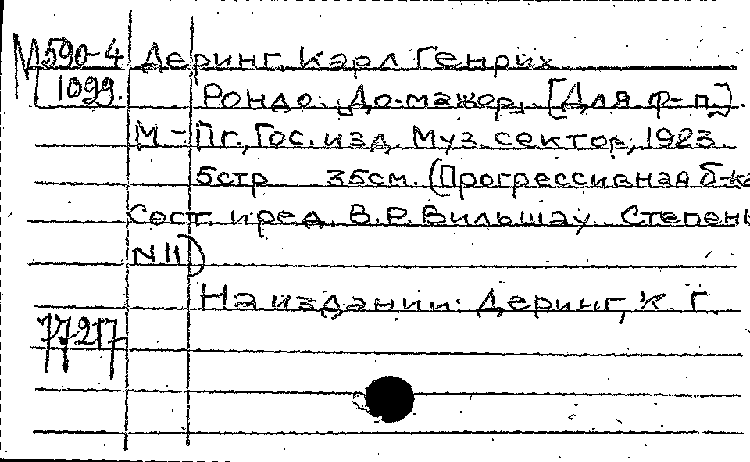 М590-4 Деринг, Карл Генрих
1099. Рондо. До-мажор, [Для ф-п.].
М.-Пг., Гос. изд. Муз. сектор, 1923.
5стр 35см. (Прогрессивная б-ка
Сост. и ред. В.Р. Вильшау. Степень
N II)
На издании: Деринг, К. Г.
77217